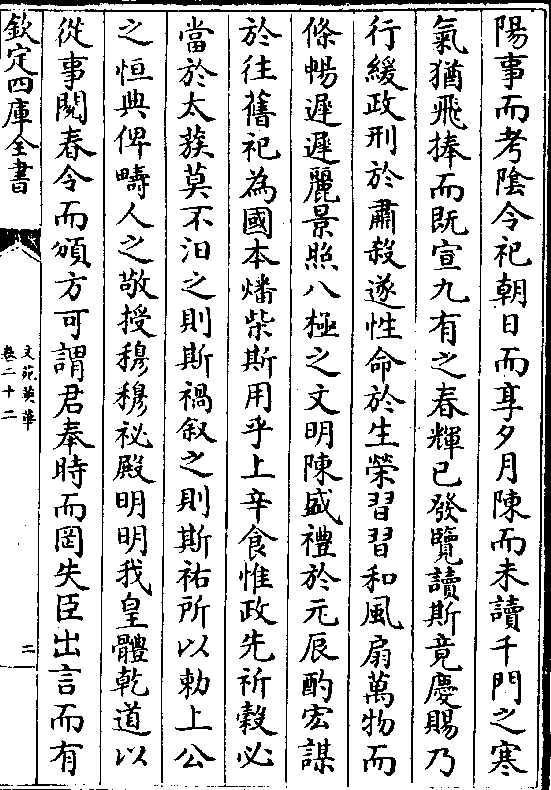 陽事而考陰令祀朝日而享夕月陳而未讀千門之寒
氣猶飛捧而既宣九有之春輝已發覽讀斯竟慶賜乃
行緩政刑於肅殺遂性命於生榮習習和風扇萬物而
條暢遲遲麗景照八極之文明陳盛禮於元辰酌宏謀
於往舊祀為國本燔柴斯用乎上辛食惟政先祈穀必
當於太蔟莫不汨之則斯禍叙之則斯祐所以勅上公
之恒典俾疇人之敬授穆穆祕殿明明我皇體乾道以
從事閱春令而頒方可謂君奉時而罔失臣出言而有
欽定四庫全書
文苑英華
卷二十二
二